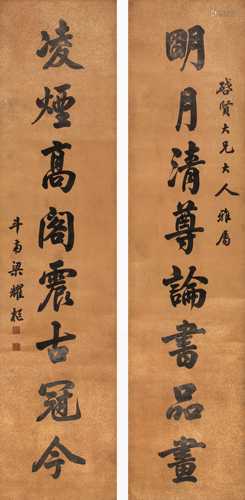 啓賢大兄大人雅屬
朙月清尊論書品畫
凌煙高閣震古冠今
斗南梁耀樞